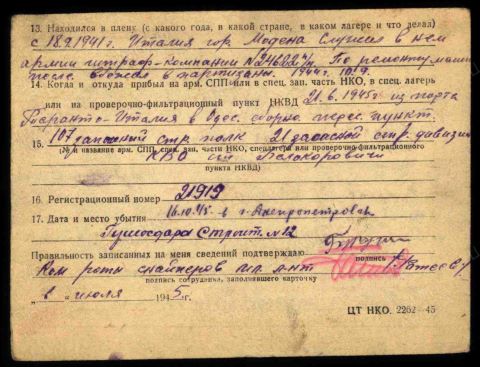 13. Находился в плену (с какого года, в какой стране, в каком лагере и что делал)
с 18.9.1941г. Италия гор. Модена Служил в нем
армии штраф-компании № По ремонту машин
после сбежал в партизаны. 1944г.
14. Когда и откуда прибыл на арм. СПП или в спец. зап. часть НКО, в спец. лагерь
или на проверочно-фильтрационный пункт НКВД 21.6.1945г из порта
Таранто-Италия в Одес. сборно перес. пункт.
15. 107 запасный стр. полк 21 запасной стр. дивизии
(№ и название арм. СПП, спец. зап. части НКО, спецлагеря или проверочно-фильтрационного
КВО ст.
пункта НКВД)
16. Регистрационный номер 21919
17. Дата и место убытия 16.10.45 в г. Днепропетровск
Строит. №12
Правильность записанных на меня сведений подтверждаю
подпись
Ком роты снайперов мл. л-нт
подпись сотрудника, заполнявшего карточку
" " июля 1945г.
ЦТ НКО. 2262—45